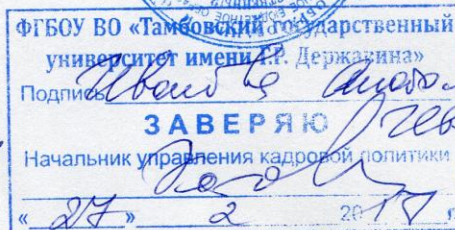 ФГБОУ ВО «Тамбовский государственный
университет имени Г.Р. Державина»
Подпись
ЗАВЕРЯЮ
Начальник управления кадровой политики
« 27 » 2 2017 г